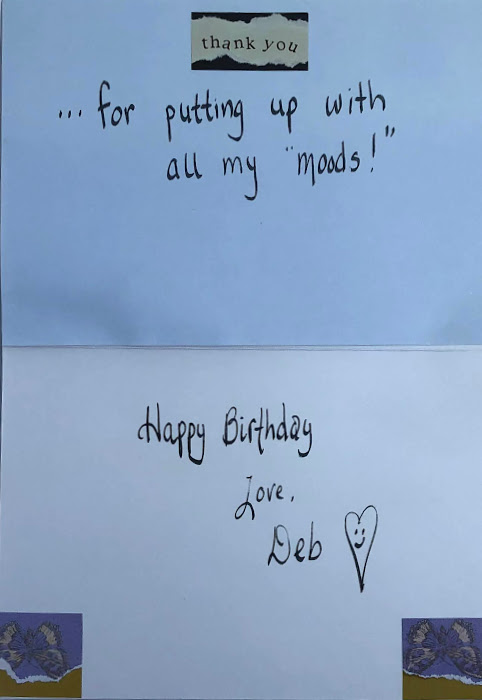 thank you
... for putting up with
all my "moods!"
Happy Birthday
Love,
Deb